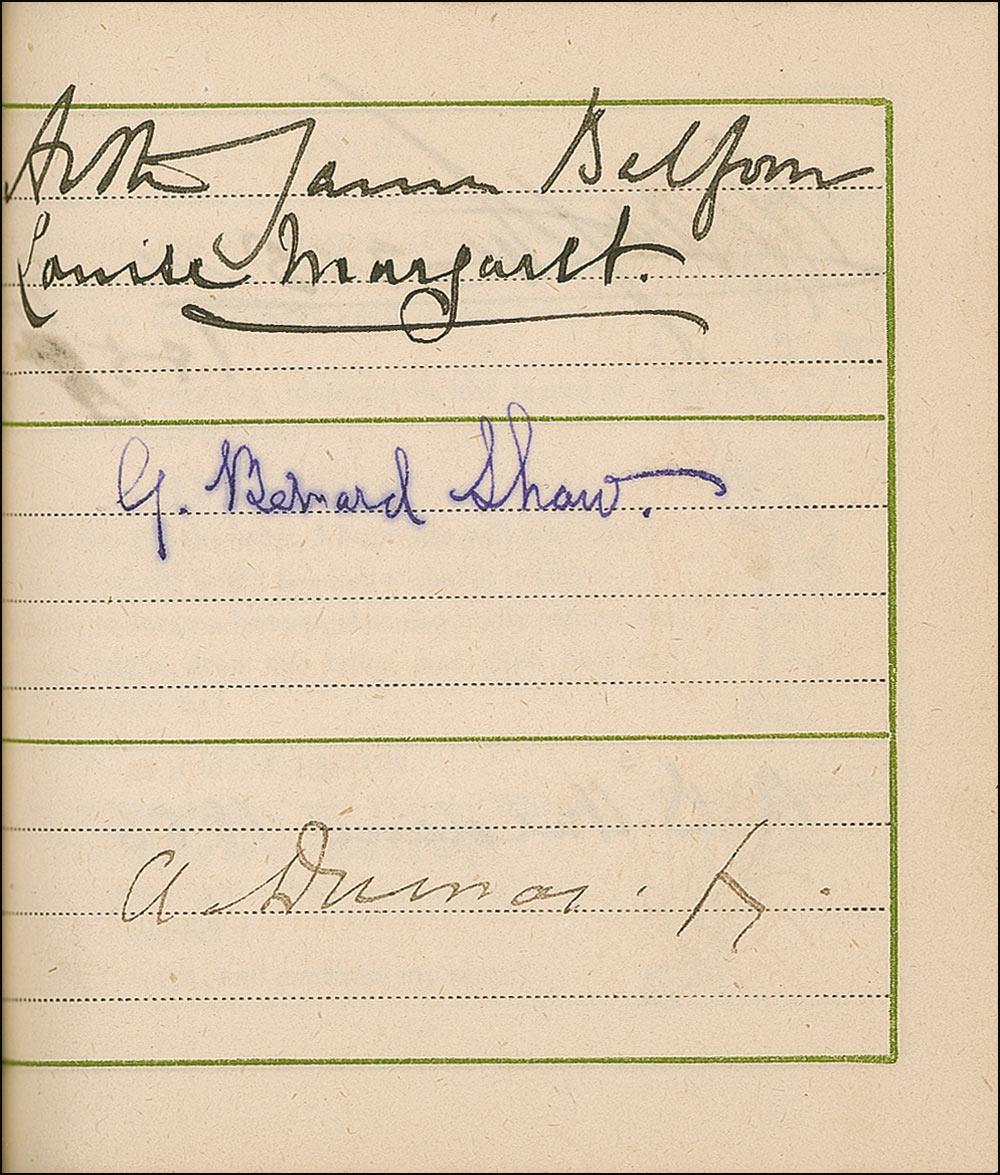 Arthur James Balfour
Louise Margaret.
G. Bernard Shaw.
A Dumas.